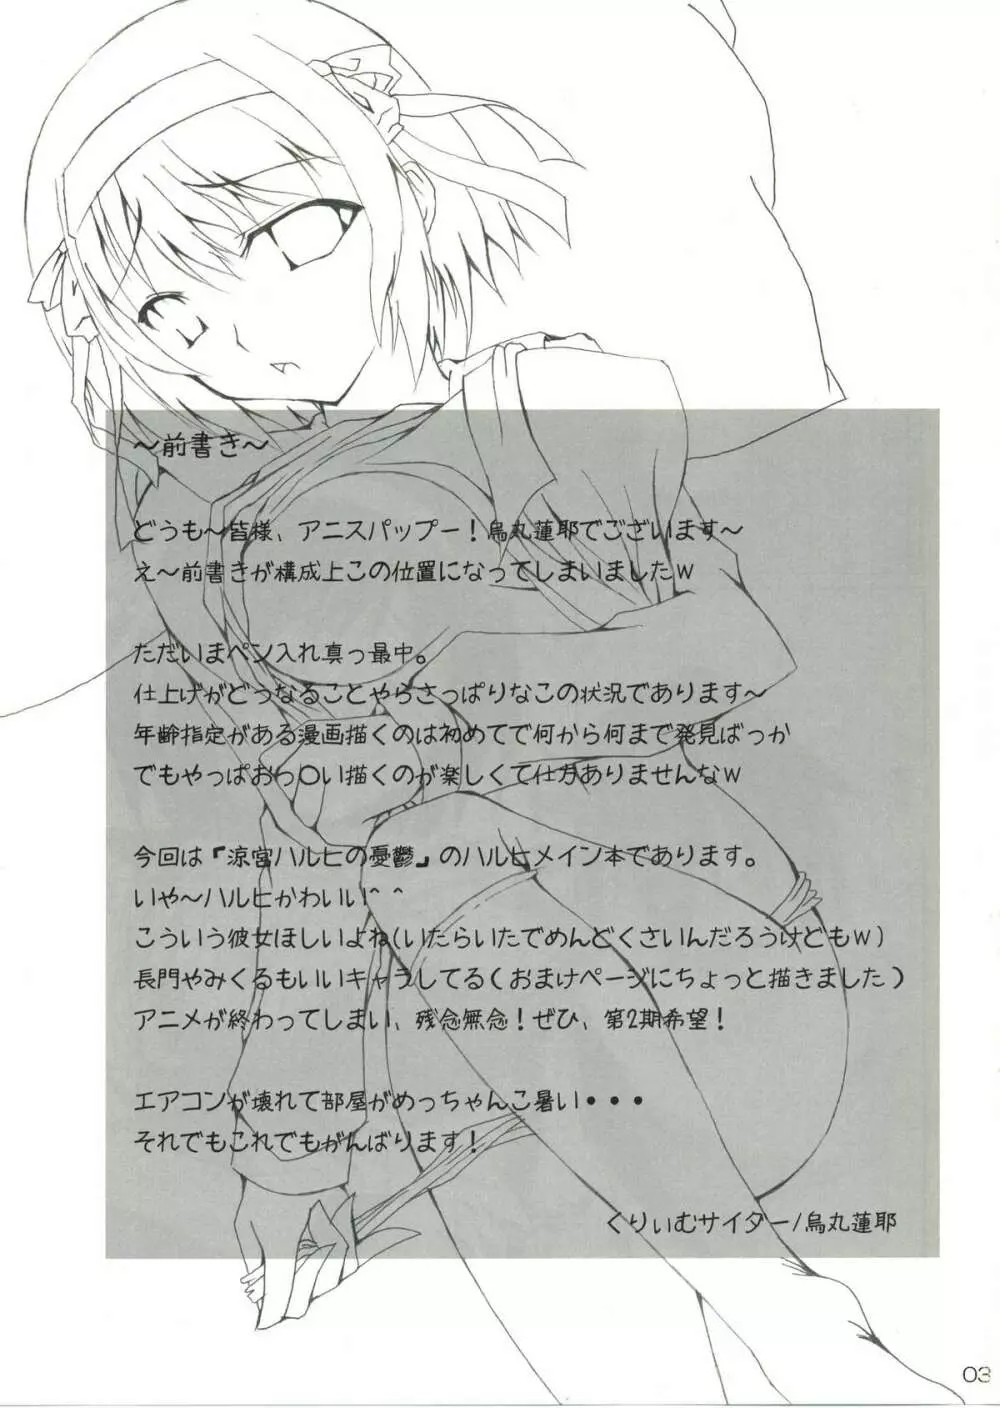 ～前書き～
どうも～皆様、アニスパップー！烏丸蓮耶でございます～
え～前書きが構成上この位置になってしまいましたw
ただいまペン入れ真っ最中。
仕上げがどうなることやらさっぱりなこの状況であります～
年齢指定がある漫画描くのは初めてで何から何まで発見ばっか
でもやっぱおっ○い描くのが楽しくて仕方ありませんなw
今回は『涼宮ハルヒの憂鬱』のハルヒメイン本であります。
いや～ハルヒかわいい^ ^
こういう彼女ほしいよね(いたらいたでめんどくさいんだろうけどもw)
長門やみくるもいいキャラしてる(おまけページにちょっと描きました)
アニメが終わってしまい、残念無念！ぜひ、第2期希望！
エアコンが壊れて部屋がめっちゃんこ暑い・・・
それでもこれでもがんばります！
くりぃむサイダー/烏丸蓮耶
03